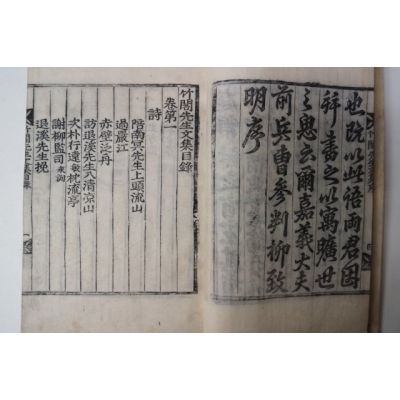 也旣以此語兩君因
幷書之以寓曠世
之思云爾嘉義大夫
前兵曹參判柳致
明序
竹閣先生文集目錄
卷第一
詩
陪南冥先生上頭流山
過嚴江
赤壁泛舟
訪退溪先生入淸凉山
次朴行遠敏枕流亭
謝柳監司永詢
退溪先生挽